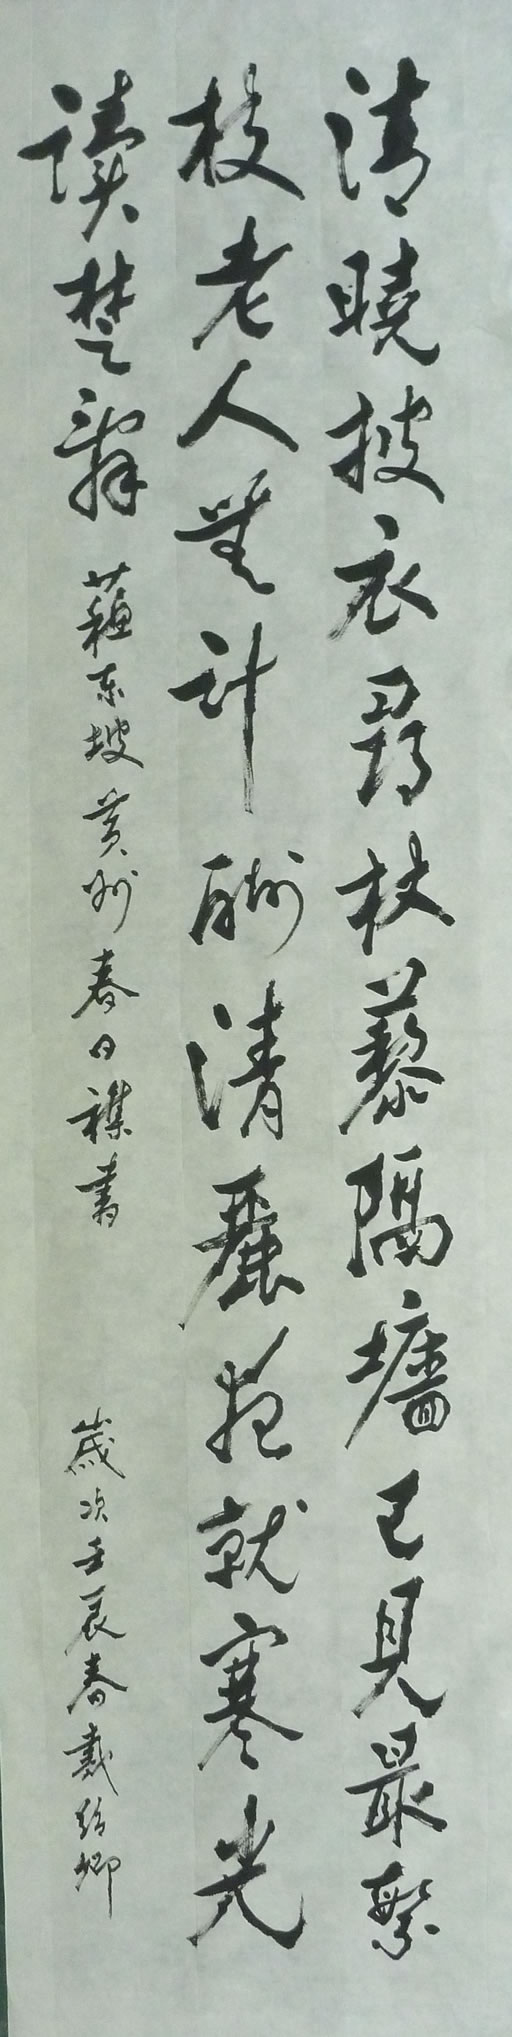 清曉披衣尋杖藜隔墻已見最繁
枝老人無計酬清麗夜就寒光
讀楚辭
蘇東坡黃州春日襍書
歲次壬辰春戴 卿